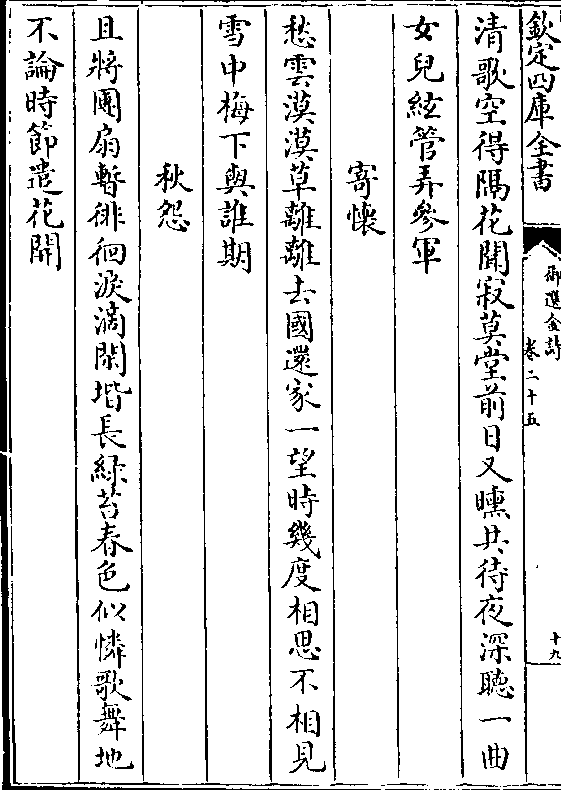 欽定四庫全書
御選金詩
卷二十五
十九
清歌空得隔花聞寂莫堂前日又曛共待夜深聽一曲
女兒絃管弄參軍
寄懷
愁雲漠漠草離離去國還家一望時幾度相思不相見
雪中梅下與誰期
秋怨
且將團扇暫徘徊淚滴閑堦長綠苔春色似憐歌舞地
不論時節遣花開